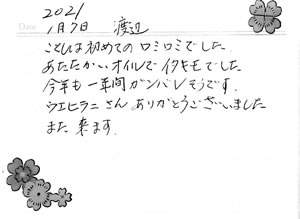 2021
Date 1月7日 渡辺
ことしは初めてのロミロミでした。
あたたかいオイルでイタキモでした
今年も一年間ガンバレそうです。
ウエヒラニさんありがとうございました
また来ます。